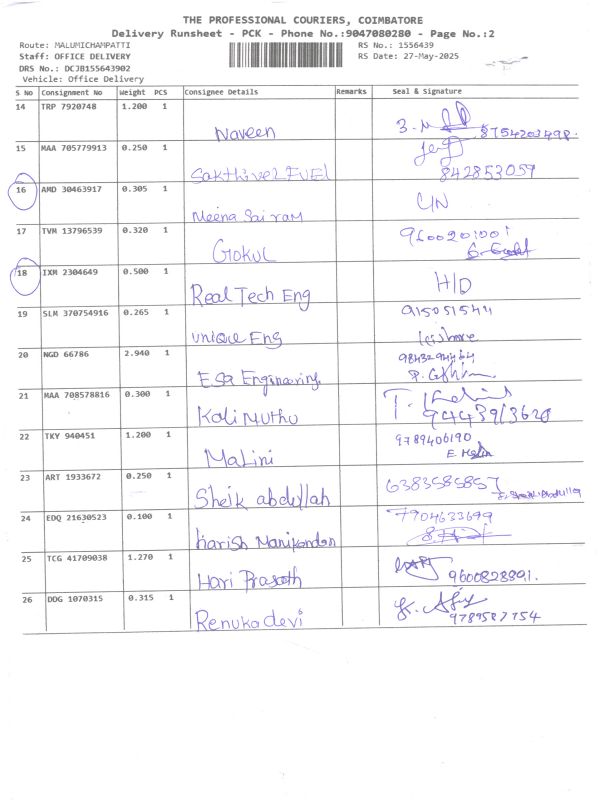 THE PROFESSIONAL COURIERS, COIMBATORE
Delivery Runsheet - PCK - Phone No.:9047080280 - Page No.:2
Route: MALUMICHAMPATTI RS No.: 1556439
Staff: OFFICE DELIVERY RS Date: 27-May-2025
DRS No.: DCJB155643902
Vehicle: Office Delivery
S No Consignment No Weight PCS Consignee Details Remarks Seal & Signature
14 TRP 7920748 1.200 1
Naveen 8754203498.
15 MAA 705779913 0.250 1
Sakthivel EVEL 842853059
16 AMD 30463917 0.305 1
Meena Sai ram
17 TVM 13796539 0.320 1 9600201001
Gokul
18 IXM 2304649 0.500 1 H/D
Real Tech Eng
19 SLM 370754916 0.265 1 915051544
unique Eng
20 NGD 66786 2.940 1 9843294464
Esa Engineering
21 MAA 708578816 0.300 1
Kali Muthu 9443913620
22 TKY 940451 1.200 1 9789406190
Malini
23 ART 1933672 0.250 1 6383585857
Sheik abdullah
24 EDQ 21630523 0.100 1 7904633699
Harish Manikandan
25 TCG 41709038 1.270 1
Hari Prasath 9600828891.
26 DDG 1070315 0.315 1
Renukadevi 9789587754